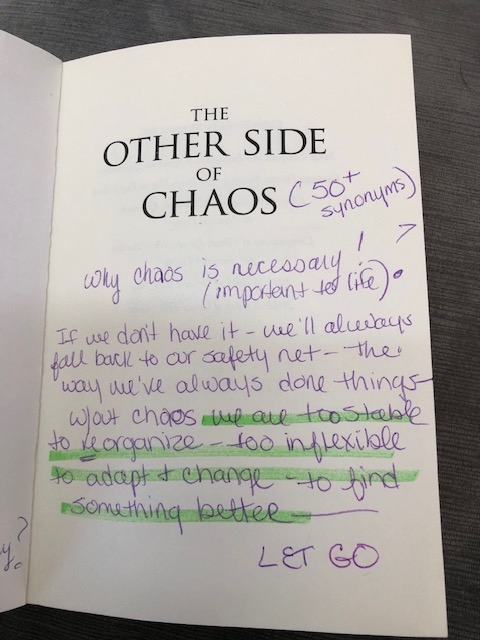 THE
OTHER SIDE
OF
CHAOS (50+
synonyms)
Why chaos is necessary! ?
(important to life).
If we don't have it - we'll always
fall back to our safety net - the
way we've always done things-
w/out chaos we are too stable
to reorganize - too inflexible
to adapt + change - to find
something better
LET GO
y?